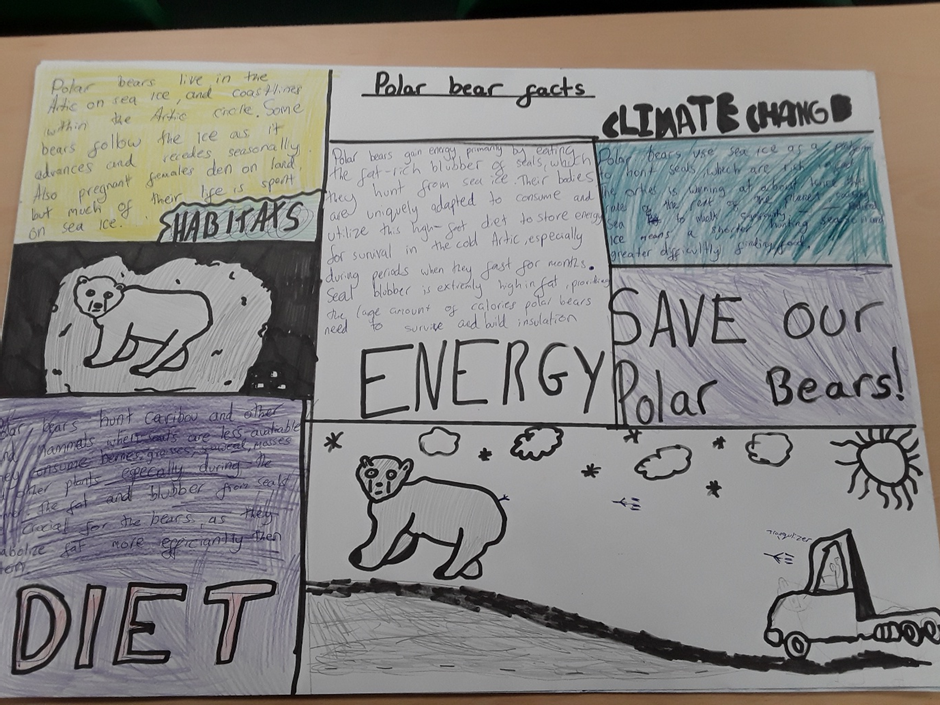 Polar bear facts
Polar bears live in the
Artic on sea ice, and coastlines
within the Artic circle. Some
bears follow the ice as it
advances and recedes seasonally.
Also pregnant females den on land
but much of their life is spent
on sea ice.
HABITATS
Polar bears gain energy primarily by eating
the fat-rich blubber of seals, which
they hunt from sea ice. Their bodies
are uniquely adapted to consume and
utilize this high-fat diet to store energy
for survival in the cold Artic, especially
during periods when they fast for months.
Seal blubber is extremly high in fat, providing
the large amount of calories polar bears
need to survive and build insulation
ENERGY
CLIMATE CHANGE
Polar bears use sea ice as a
to hunt seals, which are
the artic is warming at about
of the rest of the planet
Sea
ice means a shorter hunting
greater difficultly finding food.
SAVE our
Polar Bears!
bears hunt caribou and other
mammals when seals are less available
consume berries, grasses, seaweed, mosses
other plants especially during the
the fat and blubber from seals
crucial for the bears, as they
fat more efficiantly then
DIET